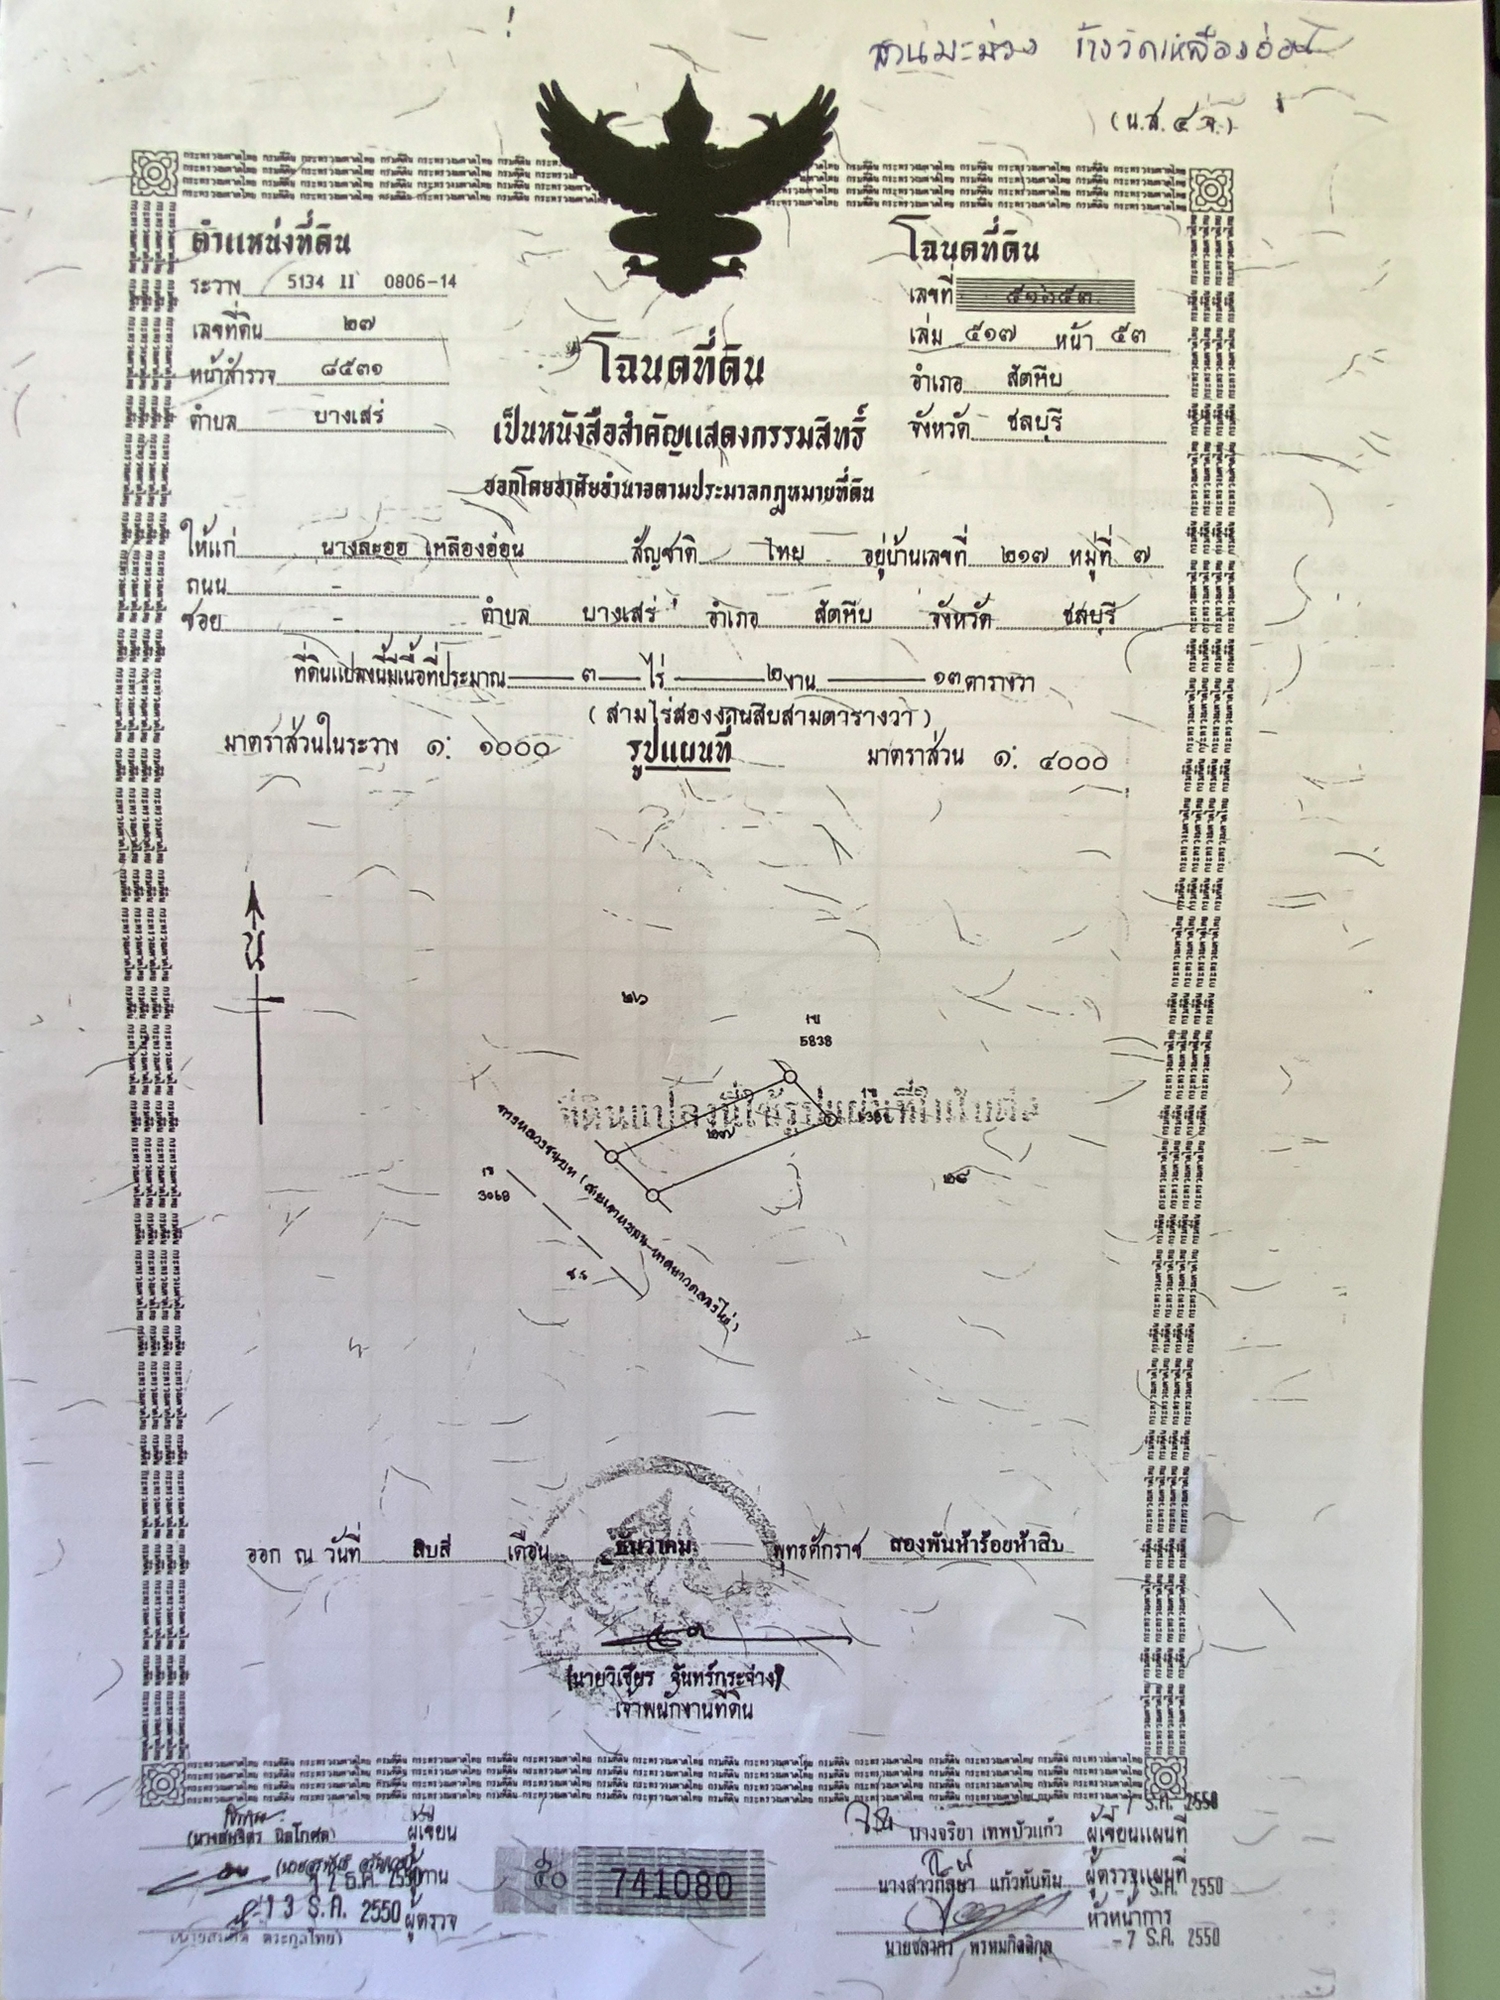 สวนมะม่วง ข้างวัดเหลืองอ่อน
(น.ส.๔ จ.)
ตำแหน่งที่ดิน
ระวาง 5134 II 0806-14
เลขที่ดิน ๒๗
หน้าสำรวจ ๘๕๓๑
ตำบล บางเสร่
โฉนดที่ดิน
เลขที่
เล่ม ๕๑๗ หน้า ๕๓
อำเภอ สัตหีบ
จังหวัด ชลบุรี
โฉนดที่ดิน
เป็นหนังสือสำคัญแสดงกรรมสิทธิ์
ออกโดยอาศัยอำนาจตามประมวลกฎหมายที่ดิน
ให้แก่ นางละออ เหลืองอ่อน สัญชาติ ไทย อยู่บ้านเลขที่ ๒๑๗ หมู่ที่ ๗
ถนน -
ซอย - ตำบล บางเสร่ อำเภอ สัตหีบ จังหวัด ชลบุรี
ที่ดินแปลงนี้มีเนื้อที่ประมาณ ๓ ไร่ ๒ งาน ๑๓ ตารางวา
(สามไร่สองงานสิบสามตารางวา)
มาตราส่วนในระวาง ๑: ๑๐๐๐ รูปแผนที่ มาตราส่วน ๑: ๔๐๐๐
น
๒๖
5838
ที่ดินแปลงนี้ใช้รูปแผนที่ในใบต่อ
๒๗
3068
๒๘
ออก ณ วันที่ สิบสี่ เดือน ธันวาคม พุทธศักราช สองพันห้าร้อยห้าสิบ
(นายวิเชียร จันทร์กระจ่าง)
เจ้าพนักงานที่ดิน
ผู้เขียน
ผู้ทาน
12 ธ.ค. 2550
13 ธ.ค. 2550 ผู้ตรวจ
๕๐ 741080
ธ.ค. 2550
นางจริยา เทพบัวแก้ว ผู้เขียนแผนที่
นางสาวกัลยา แก้วทับทิม ผู้ตรวจแผนที่
ธ.ค. 2550
หัวหน้าการ
-7 ธ.ค. 2550
พรหมกิตติกุล